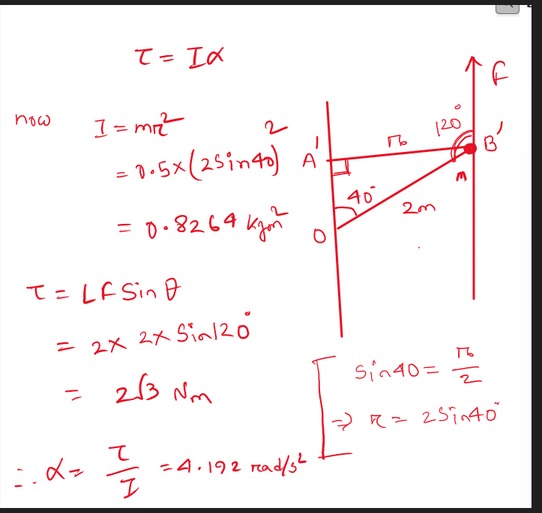 τ = Iα
now I = mr²
= 0.5 × (2Sin40)²
= 0.8264 kgm²
τ = LFSinθ
= 2 × 2 × Sin120°
= 2√3 Nm
∴ α = τ/I = 4.192 rad/s²
F
120°
A'
r
B'
m
40°
2m
O
Sin40 = r/2
⇒ r = 2Sin40°